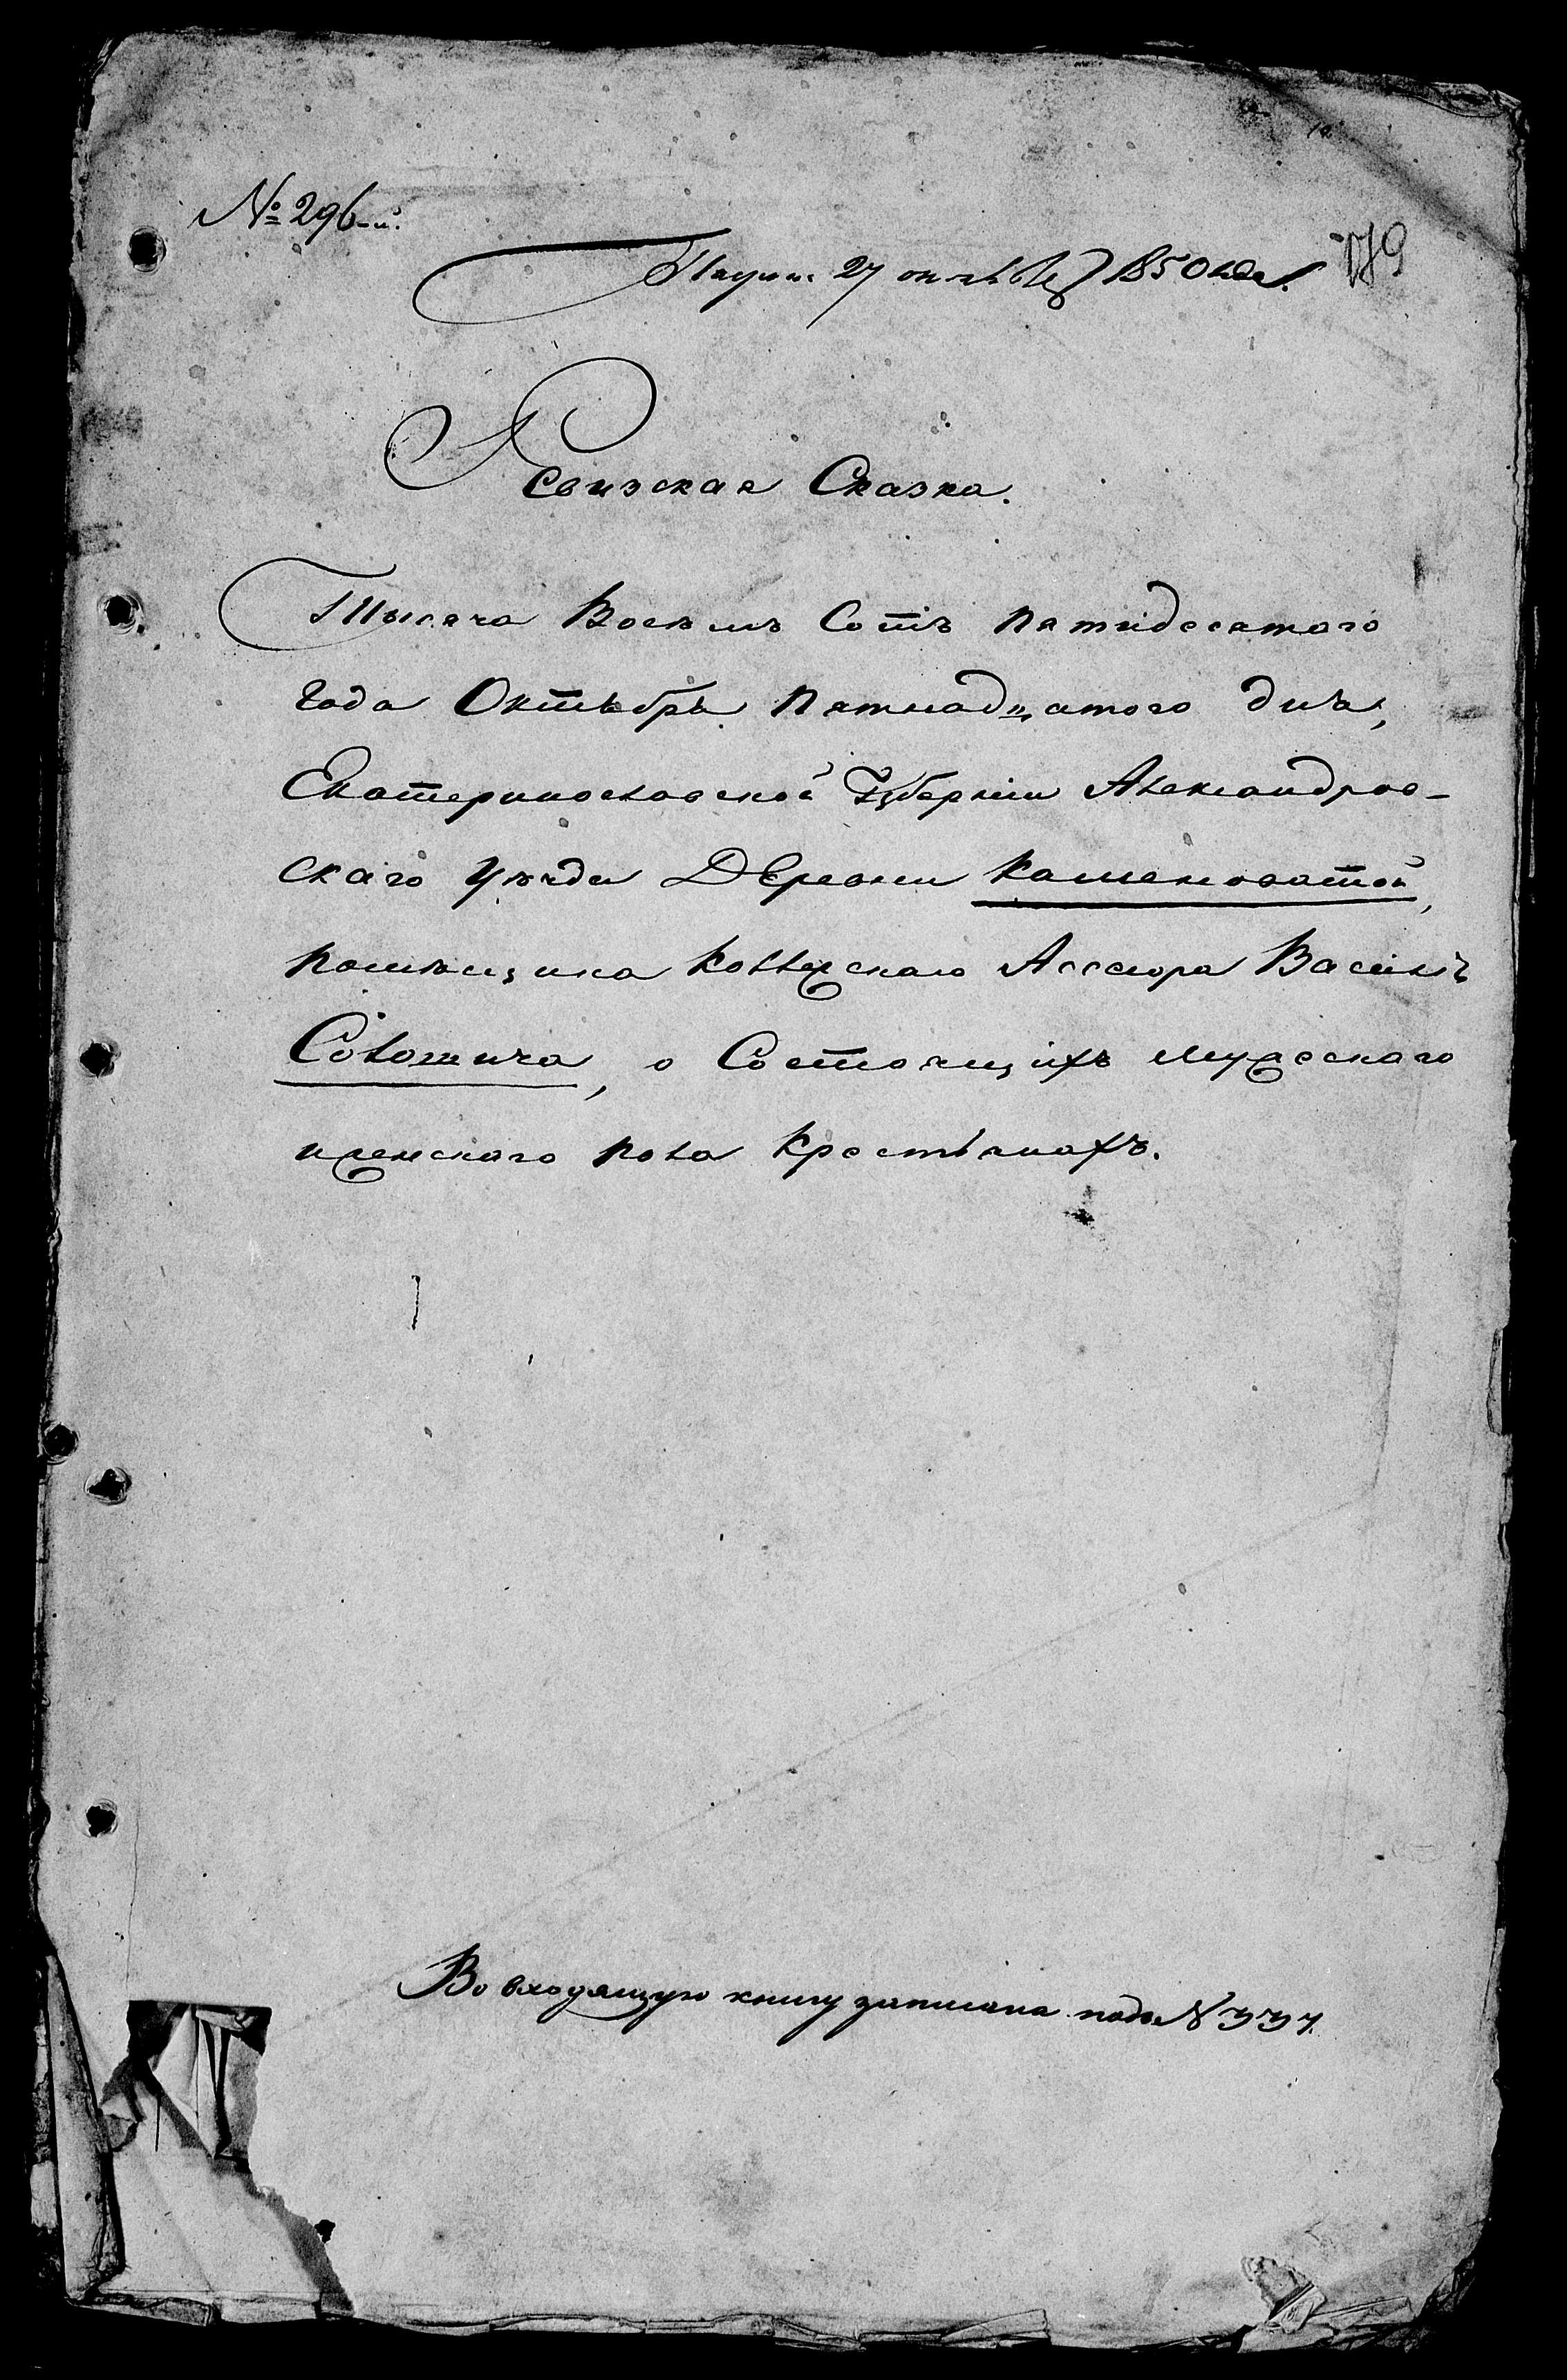 № 296-й.
Получ. 27 октября 1850 года.
179
Ревизская Сказка.
Тысяча Восемь Сотъ пятидесятаго
Года Октября пятнадцатого дня,
Екатеринославской Губерніи Александров-
скаго Уѣзда Деревни Каменоватой,
помѣщика Коллежскаго Ассесора Василія
Соломича, о Состоящихъ мужескаго
и женскаго пола Крестьянахъ.
Во входящую книгу записана подъ № 337.